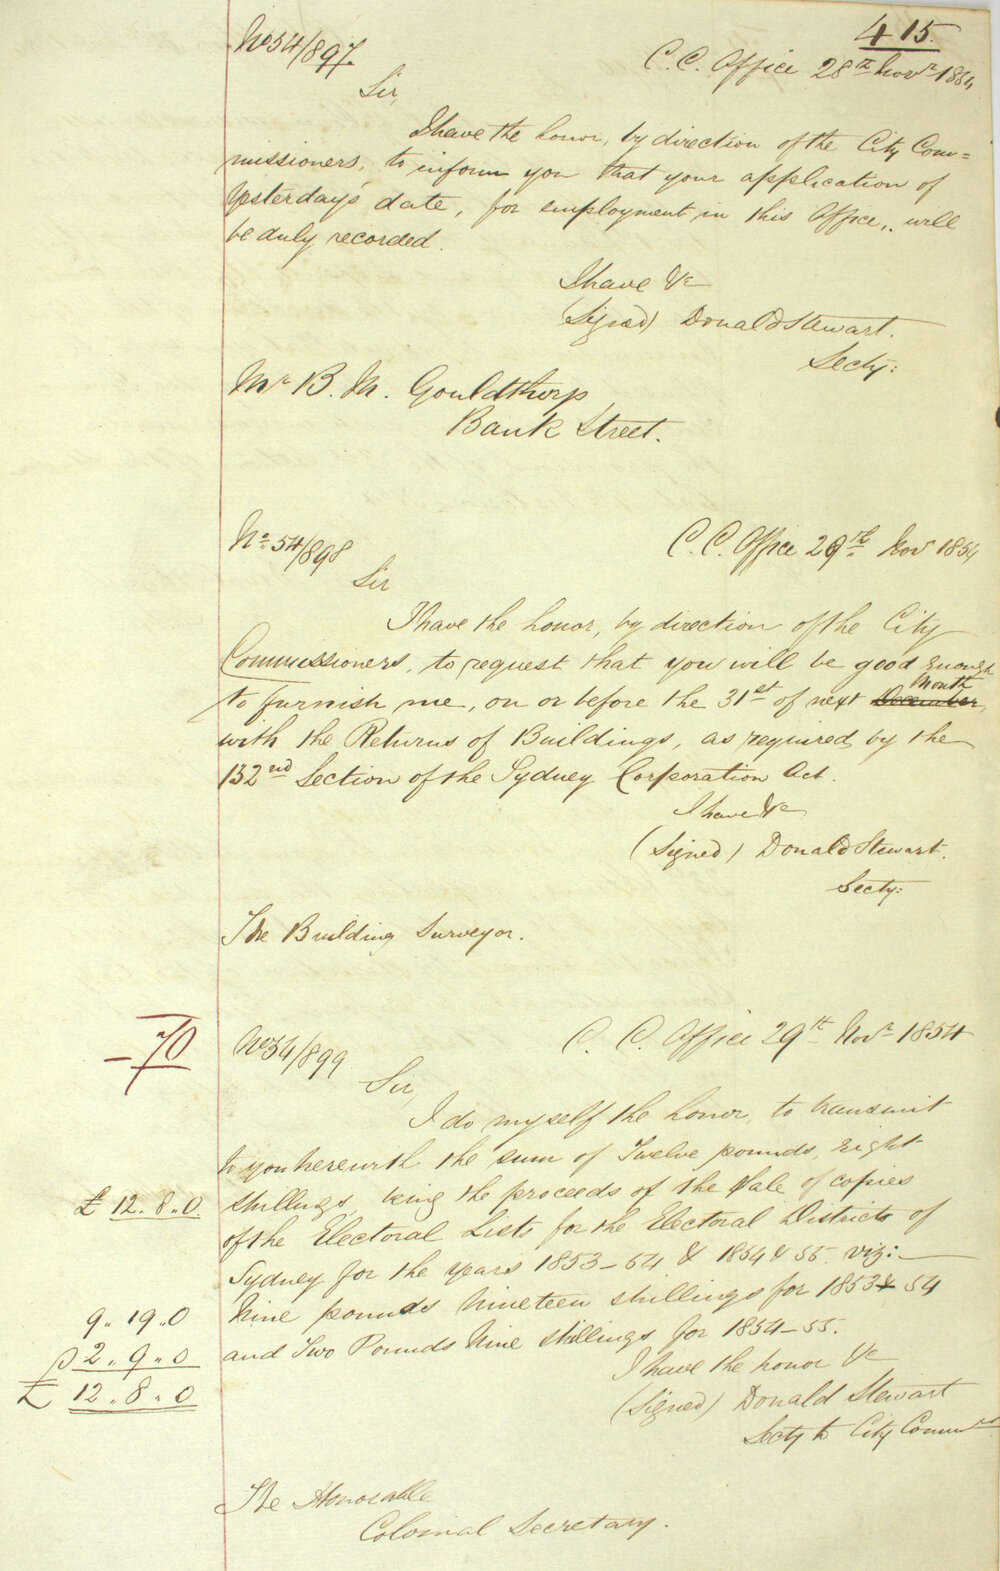 415
No 54/897.
C. C. Office 28th Novr 1854
Sir,
I have the honor, by direction of the City Com=
missioners, to inform you that your application of
Yesterday's date, for employment in this Office, will
be duly recorded.
I have &c
(Signed) Donald Stewart.
Secty:
Mr B. M. Gouldthorp
Bank Street.
No 54/898
C. C. Office 29th Nov 1854
Sir
I have the honor, by direction of the City
Commissioners, to request that you will be good enough
to furnish me, on or before the 31st of next December Month
with the Returns of Buildings, as required by the
132nd Section of the Sydney Corporation Act.
I have &c
(Signed) Donald Stewart.
Secty:
The Building Surveyor.
70
No 54/899
C. C. Office 29th Novr 1854
Sir,
I do myself the honor, to transmit
to you herewith the sum of Twelve pounds, eight
£ 12.8.0
shillings, being the proceeds of the sale of copies
of the Electoral Lists for the Electoral Districts of
Sydney for the years 1853-54 & 1854 & 55. viz:—
9.19.0
Nine pounds Nineteen shillings for 1853 & 54
2.9.0
and Two Pounds Nine shillings for 1854-55.
£ 12.8.0
I have the honor &c
(Signed) Donald Stewart
Secty to City Commrs
The Honorable
Colonial Secretary.